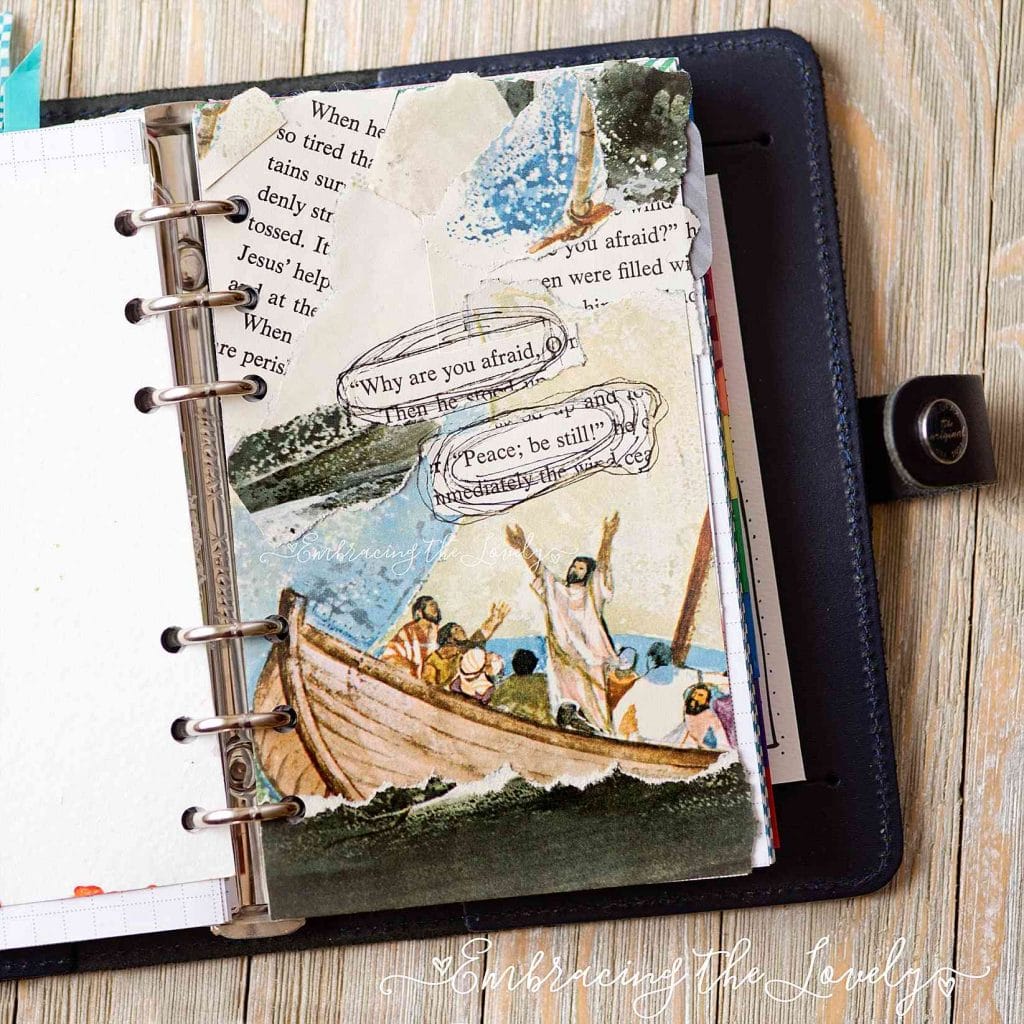 When he
so tired tha
tains sur
denly str
tossed. It
Jesus' help
and at the
When
re peris
wind
e you afraid?" h
en were filled wi
"Why are you afraid, O
Then he stood up
up and
"Peace; be still!" he c
mmediately the wind cea
Embracing the Lovely
the
original
Embracing the Lovely